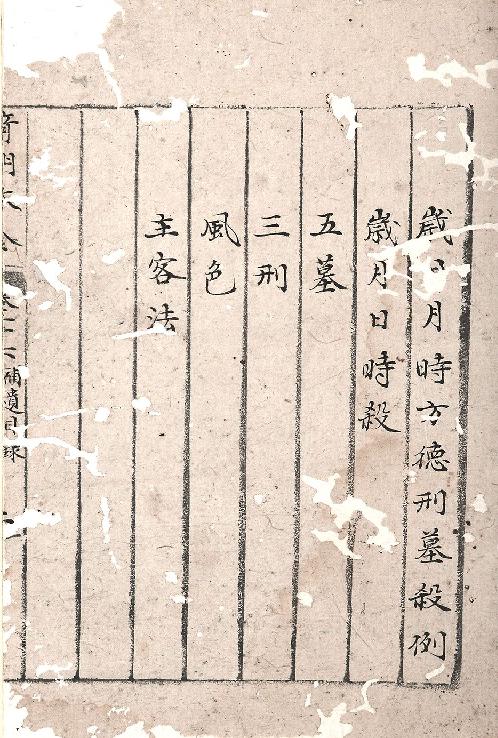 歲日月時方德刑墓殺例
歲月日時殺
五墓
三刑
風色
主客法
奇門大全
補遺目錄